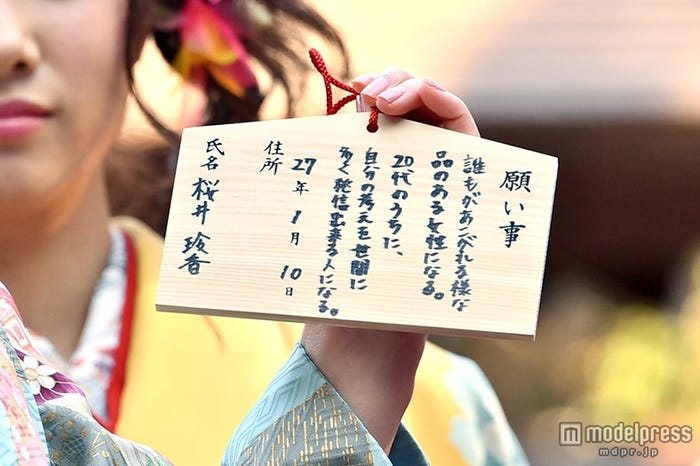 願い事
誰もがあこがれる様な
品のある女性になる。
20代のうちに、
自分の考えを世間に
多く発信出来る人になる。
27年1月10日
住所
氏名 桜井 玲香
modelpress
mdpr.jp